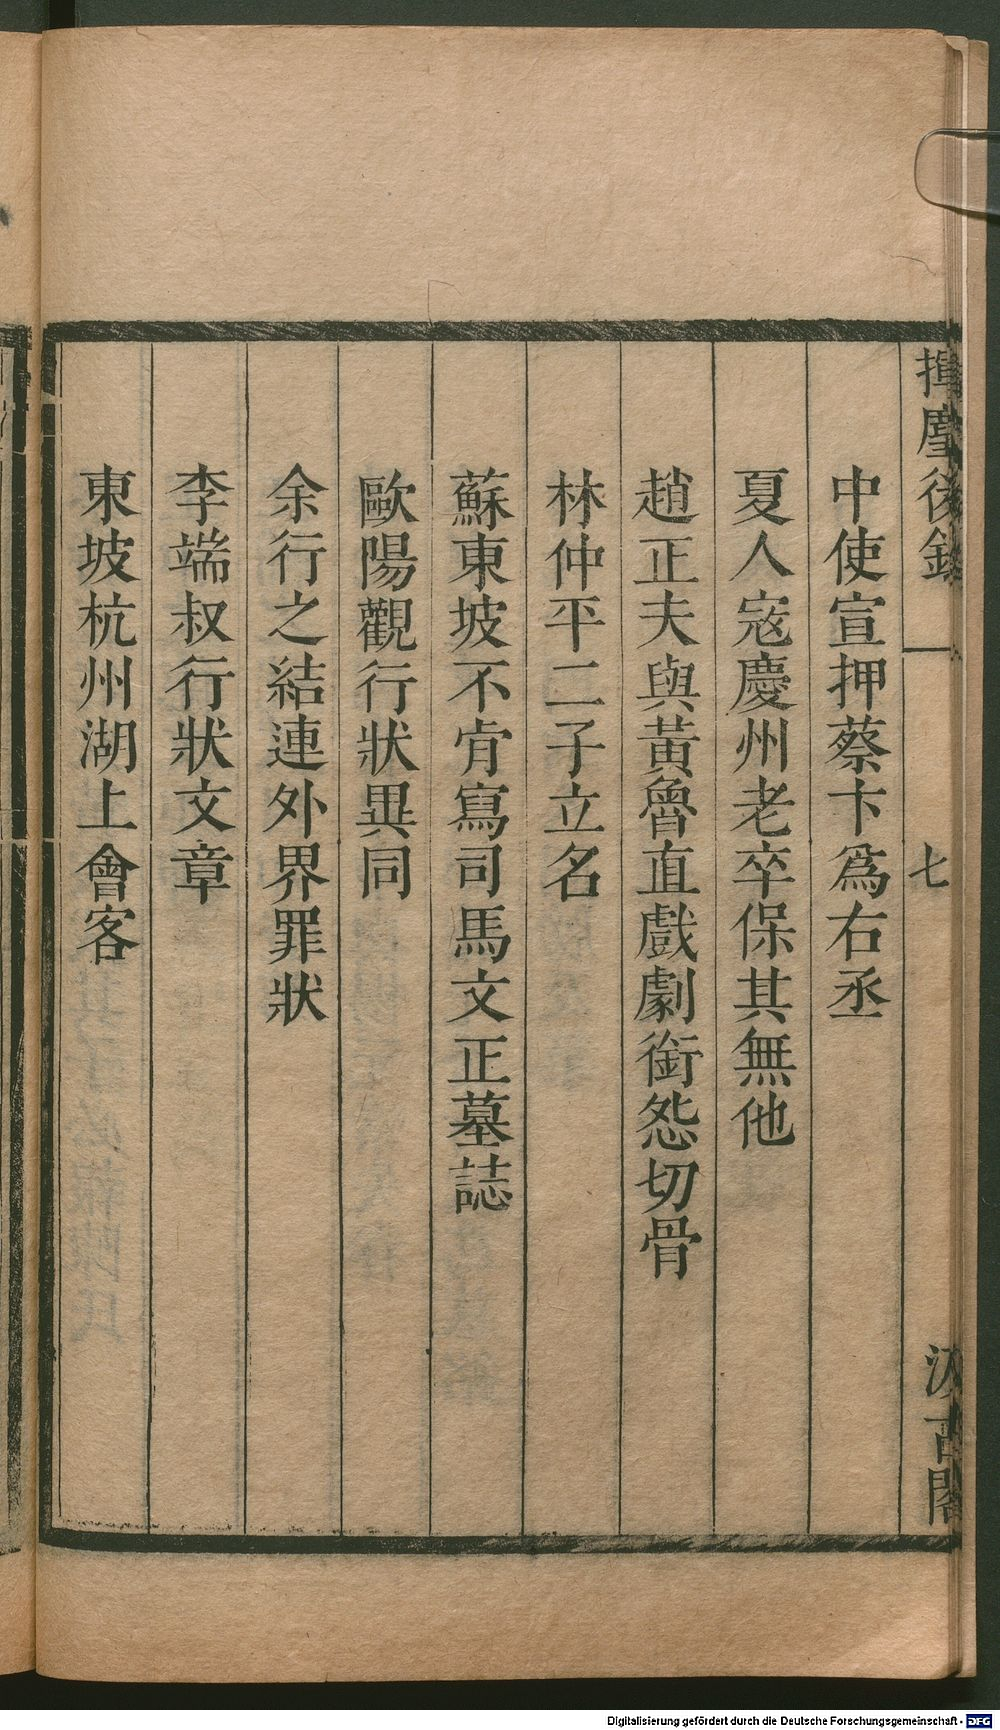 揮麈後錄
七
汲古閣
中使宣押蔡卞爲右丞
夏人寇慶州老卒保其無他
趙正夫與黃魯直戲劇銜怨切骨
林仲平二子立名
蘇東坡不肯寫司馬文正墓誌
歐陽觀行狀異同
余行之結連外界罪狀
李端叔行狀文章
東坡杭州湖上會客
Digitalisierung gefördert durch die Deutsche Forschungsgemeinschaft - DFG